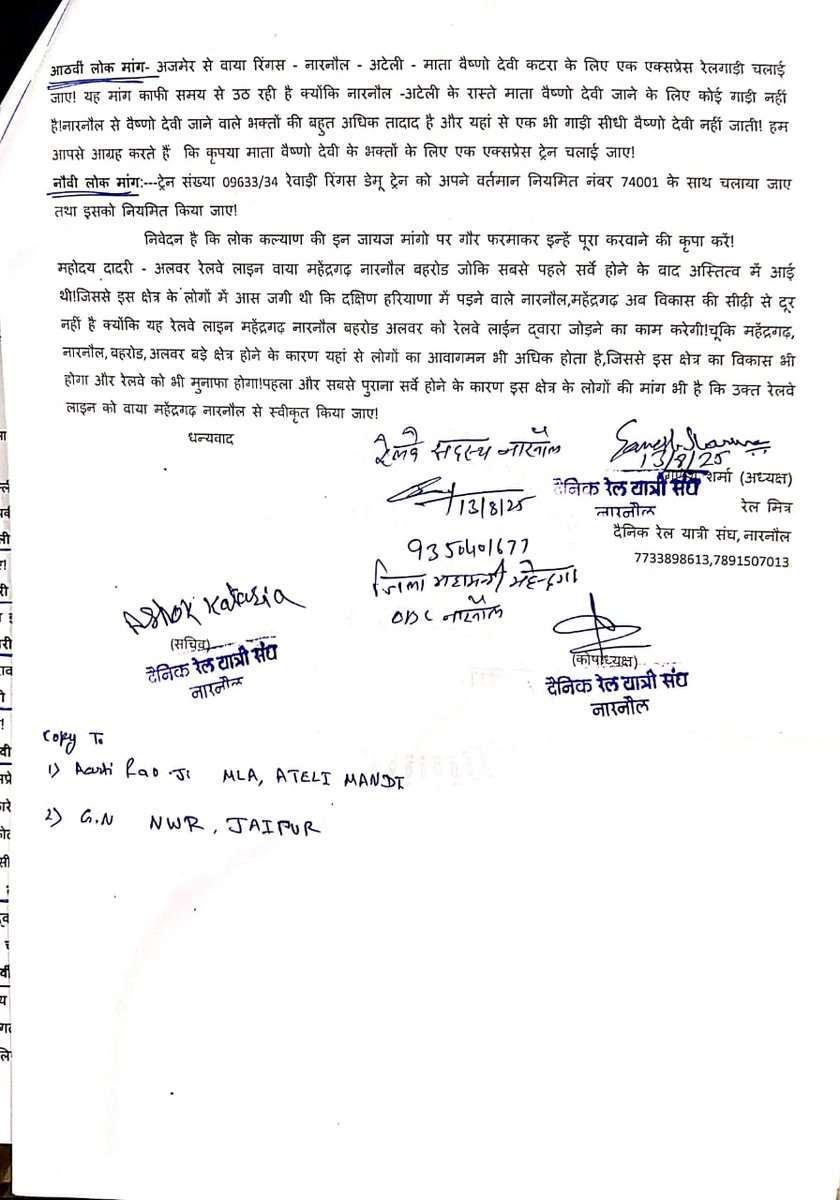 आठवी लोक मांग- अजमेर से वाया रिंगस - नारनौल - अटेली - माता वैष्णो देवी कटरा के लिए एक एक्सप्रेस रेलगाड़ी चलाई
जाए! यह मांग काफी समय से उठ रही है क्योंकि नारनौल -अटेली के रास्ते माता वैष्णो देवी जाने के लिए कोई गाड़ी नहीं
है!नारनौल से वैष्णो देवी जाने वाले भक्तों की बहुत अधिक तादाद है और यहां से एक भी गाड़ी सीधी वैष्णो देवी नहीं जाती! हम
आपसे आग्रह करते हैं कि कृपया माता वैष्णो देवी के भक्तों के लिए एक एक्सप्रेस ट्रेन चलाई जाए!
नौवी लोक मांग:---ट्रेन संख्या 09633/34 रेवाड़ी रिंगस डेमू ट्रेन को अपने वर्तमान नियमित नंबर 74001 के साथ चलाया जाए
तथा इसको नियमित किया जाए!
निवेदन है कि लोक कल्याण की इन जायज मांगो पर गौर फरमाकर इन्हें पूरा करवाने की कृपा करें!
महोदय दादरी - अलवर रेलवे लाइन वाया महेंद्रगढ़ नारनौल बहरोड जोकि सबसे पहले सर्वे होने के बाद अस्तित्व में आई
थी!जिससे इस क्षेत्र के लोगों में आस जगी थी कि दक्षिण हरियाणा में पड़ने वाले नारनौल,महेंद्रगढ़ अब विकास की सीढ़ी से दूर
नहीं है क्योंकि यह रेलवे लाइन महेंद्रगढ़ नारनौल बहरोड अलवर को रेलवे लाईन द्वारा जोड़ने का काम करेगी!चूकि महेंद्रगढ़,
नारनौल,बहरोड,अलवर बड़े क्षेत्र होने के कारण यहां से लोगों का आवागमन भी अधिक होता है,जिससे इस क्षेत्र का विकास भी
होगा और रेलवे को भी मुनाफा होगा!पहला और सबसे पुराना सर्वे होने के कारण इस क्षेत्र के लोगों की मांग भी है कि उक्त रेलवे
लाइन को वाया महेंद्रगढ़ नारनौल से स्वीकृत किया जाए!
धन्यवाद
रेलवे सदस्य नारनौल
13/8/25
9350401677
जिला महामन्त्री
OBC नारनौल
13/8/25
शर्मा (अध्यक्ष)
दैनिक रेल यात्री संघ
नारनौल
रेल मित्र
दैनिक रेल यात्री संघ,नारनौल
7733898613,7891507013
Ashok Kataria
(सचिव)
दैनिक रेल यात्री संघ
नारनौल
(कोषाध्यक्ष)
दैनिक रेल यात्री संघ
नारनौल
Copy To
1) Aarti Rao Ji MLA, ATELI MANDI
2) G.N NWR, JAIPUR